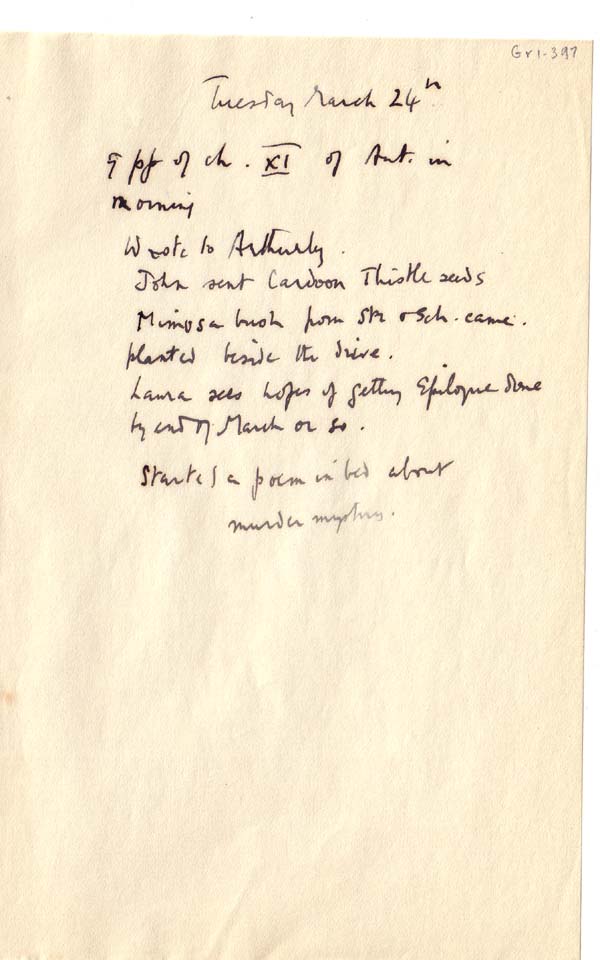 Gr1-397
Tuesday March 24th
9 pp of ch. XI of Ant. in
morning
Wrote to
John sent Cardoon Thistle seeds
Mimosa bush from & Sch. came.
planted beside the drive.
Laura sees hopes of getting Epilogue done
by end of March or so.
Started a poem in bed about
murder mystery.